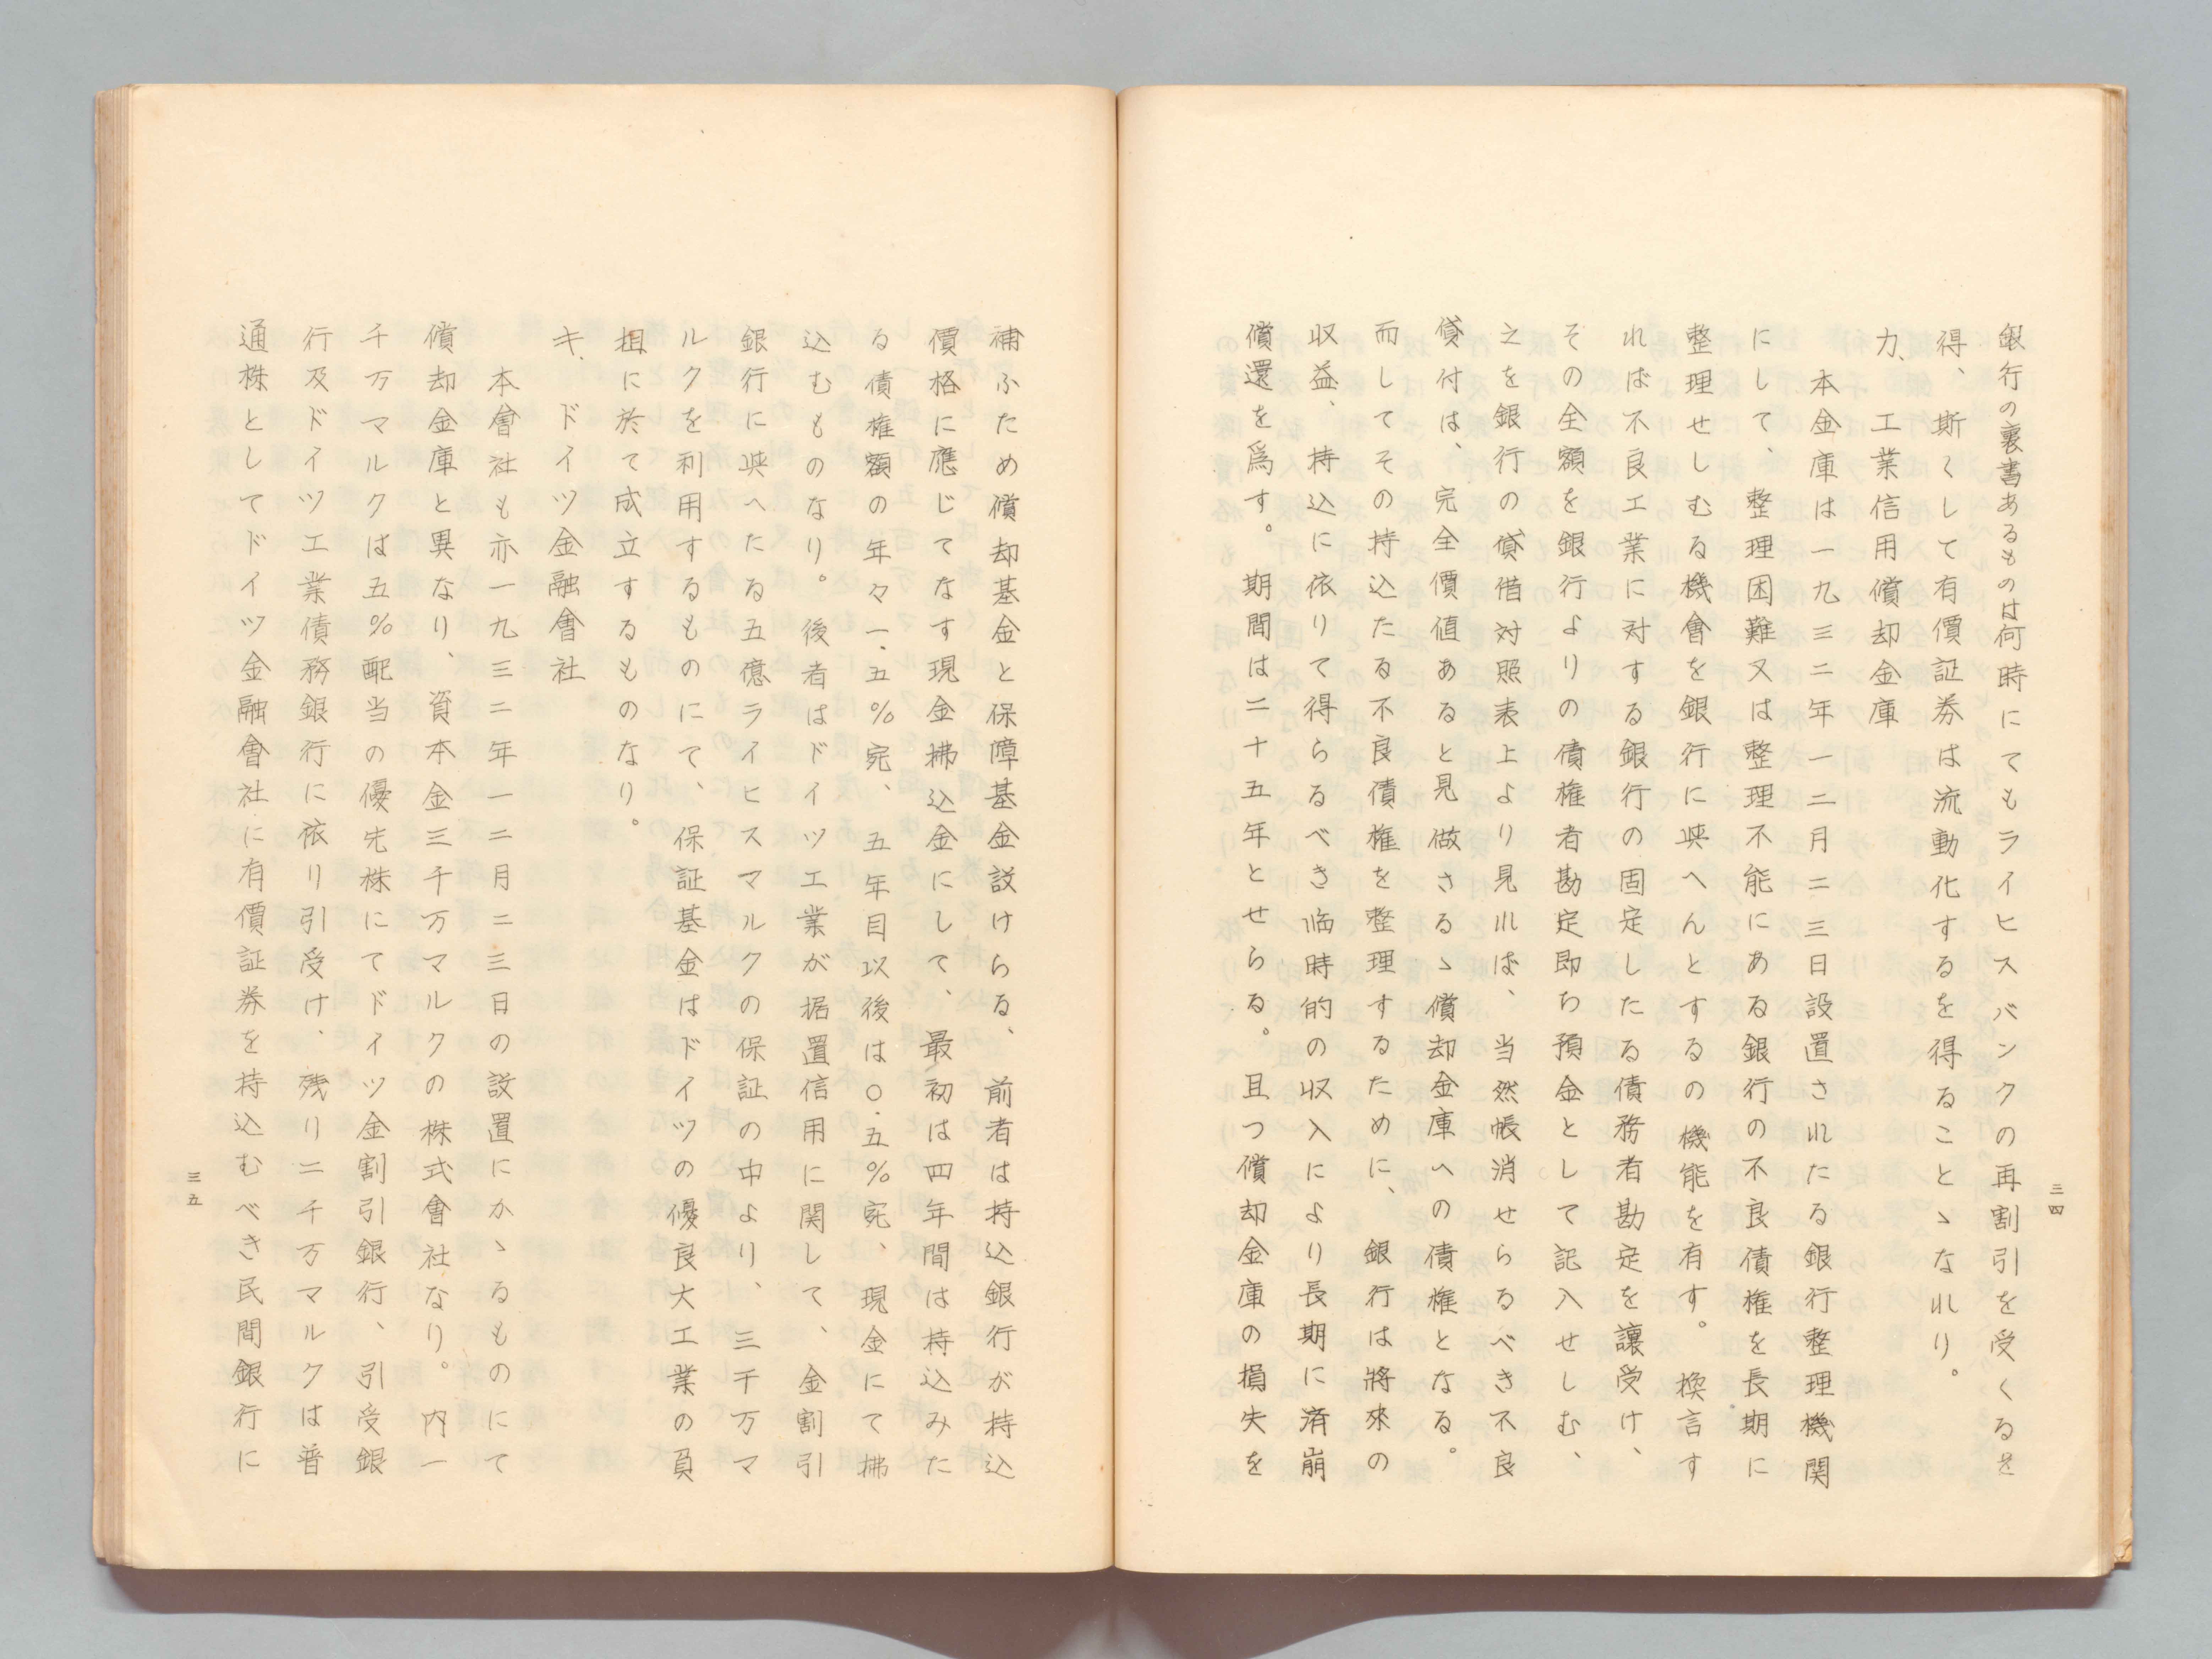 三四
銀行の裏書あるものは何時にてもライヒスバンクの再割引を受くるを
得、斯くして有價証券は流動化するを得ることゝなれり。
カ、工業信用償却金庫
本金庫は一九三二年一二月二三日設置されたる銀行整理機関
にして、整理困難又は整理不能にある銀行の不良債権を長期に
整理せしむる機會を銀行に與へんとするの機能を有す。換言す
れば不良工業に対する銀行の固定したる債務者勘定を讓受け、
その全額を銀行よりの債権者勘定即ち預金として記入せしむ、
之を銀行の貸借対照表上より見れば、当然帳消せらるべき不良
貸付は、完全價値あると見做さるゝ償却金庫への債権となる。
而してその持込たる不良債権を整理するために、銀行は將來の
収益、持込に依りて得らるべき临時的の収入により長期に済崩
償還を爲す。期間は二十五年とせらる。且つ償却金庫の損失を
補ふため償却基金と保障基金設けらる、前者は持込銀行が持込
價格に應じてなす現金拂込金にして、最初は四年間は持込みた
る債権額の年々一.五%宛、五年目以後は〇.五%宛、現金にて拂
込むものなり。後者はドイツ工業が据置信用に関して、金割引
銀行に與へたる五億ライヒスマルクの保証の中より、三千万マ
ルクを利用するものにて、保証基金はドイツの優良大工業の負
担に於て成立するものなり。
キ、ドイツ金融會社
本會社も亦一九三二年一二月二三日の設置にかゝるものにて
償却金庫と異なり、資本金三千万マルクの株式會社なり。内一
千万マルクは五%配当の優先株にてドイツ金割引銀行、引受銀
行及ドイツ工業債務銀行に依り引受け、残り二千万マルクは普
通株としてドイツ金融會社に有價証券を持込むべき民間銀行に
三五